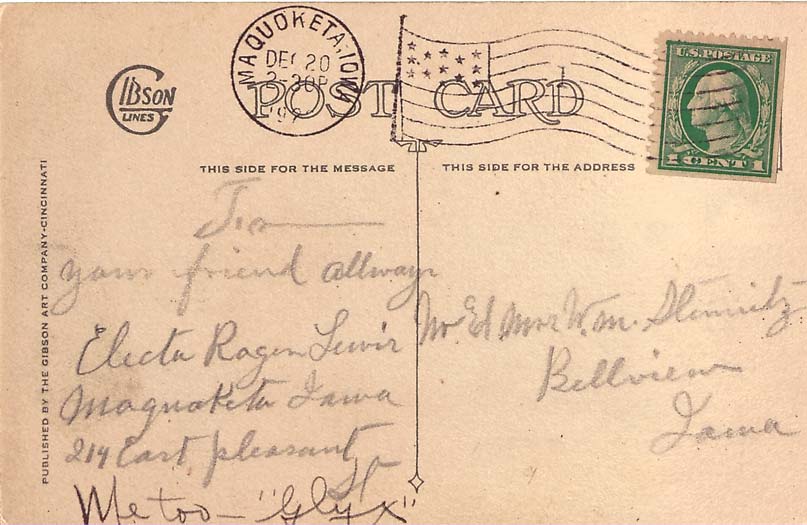 MAQUOKETA, IOWA
DEC 20
2-30P
GIBSON
LINES
POST CARD
U.S. POSTAGE
1 CENT 1
THIS SIDE FOR THE MESSAGE
THIS SIDE FOR THE ADDRESS
PUBLISHED BY THE GIBSON ART COMPANY-CINCINNATI
your friend allways
Electa Rogen Lewis
Maquoketa Iowa
214 East pleasant
St
Me too - "Glyx"
Mr. Ed Mrs W. m.
Bellview
Iowa